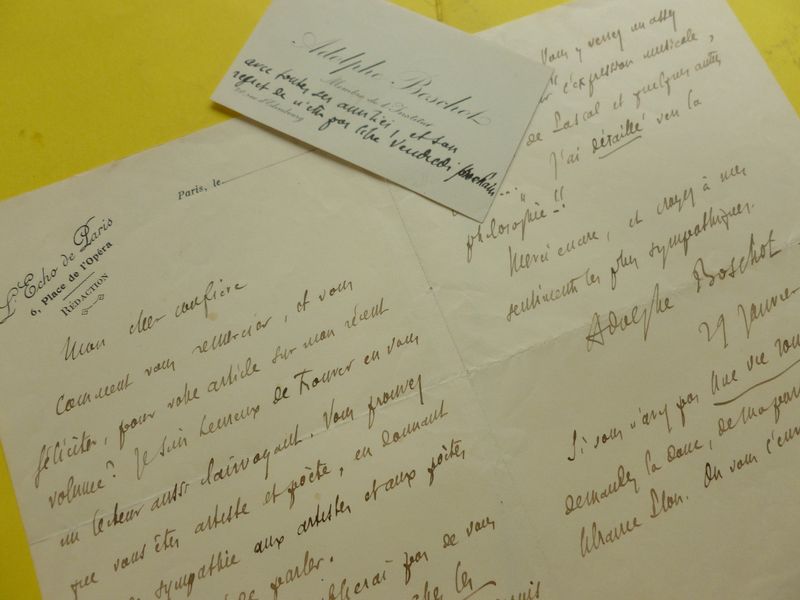 Adolphe Boschot
Membre de l'Institut
avec toutes ses amitiés, et son
regret de n'être pas libre Vendredi prochain
Paris, le
L'Echo de Paris
6, Place de l'Opéra
RÉDACTION
Mon cher confrère
Comment vous remercier, et vous
féliciter, pour votre article sur mon récent
volume? Je suis heureux de trouver en vous
un lecteur aussi clairvoyant. Vous prouvez
que vous êtes artiste et poète, en donnant
sympathie aux artistes et aux poètes
de parler.
pas de vous
les
Vous y verrez un assez
l'expression musicale,
de Pascal et quelques autres
J'ai détaillé vers la
philosophie!!
Merci encore, et croyez à mes
sentiments les plus sympathiques.
Adolphe Boschot
29 Janvier
Si vous n'avez pas Une vie rom
demandez la donc, de ma part
librairie Plon. On vous l'env